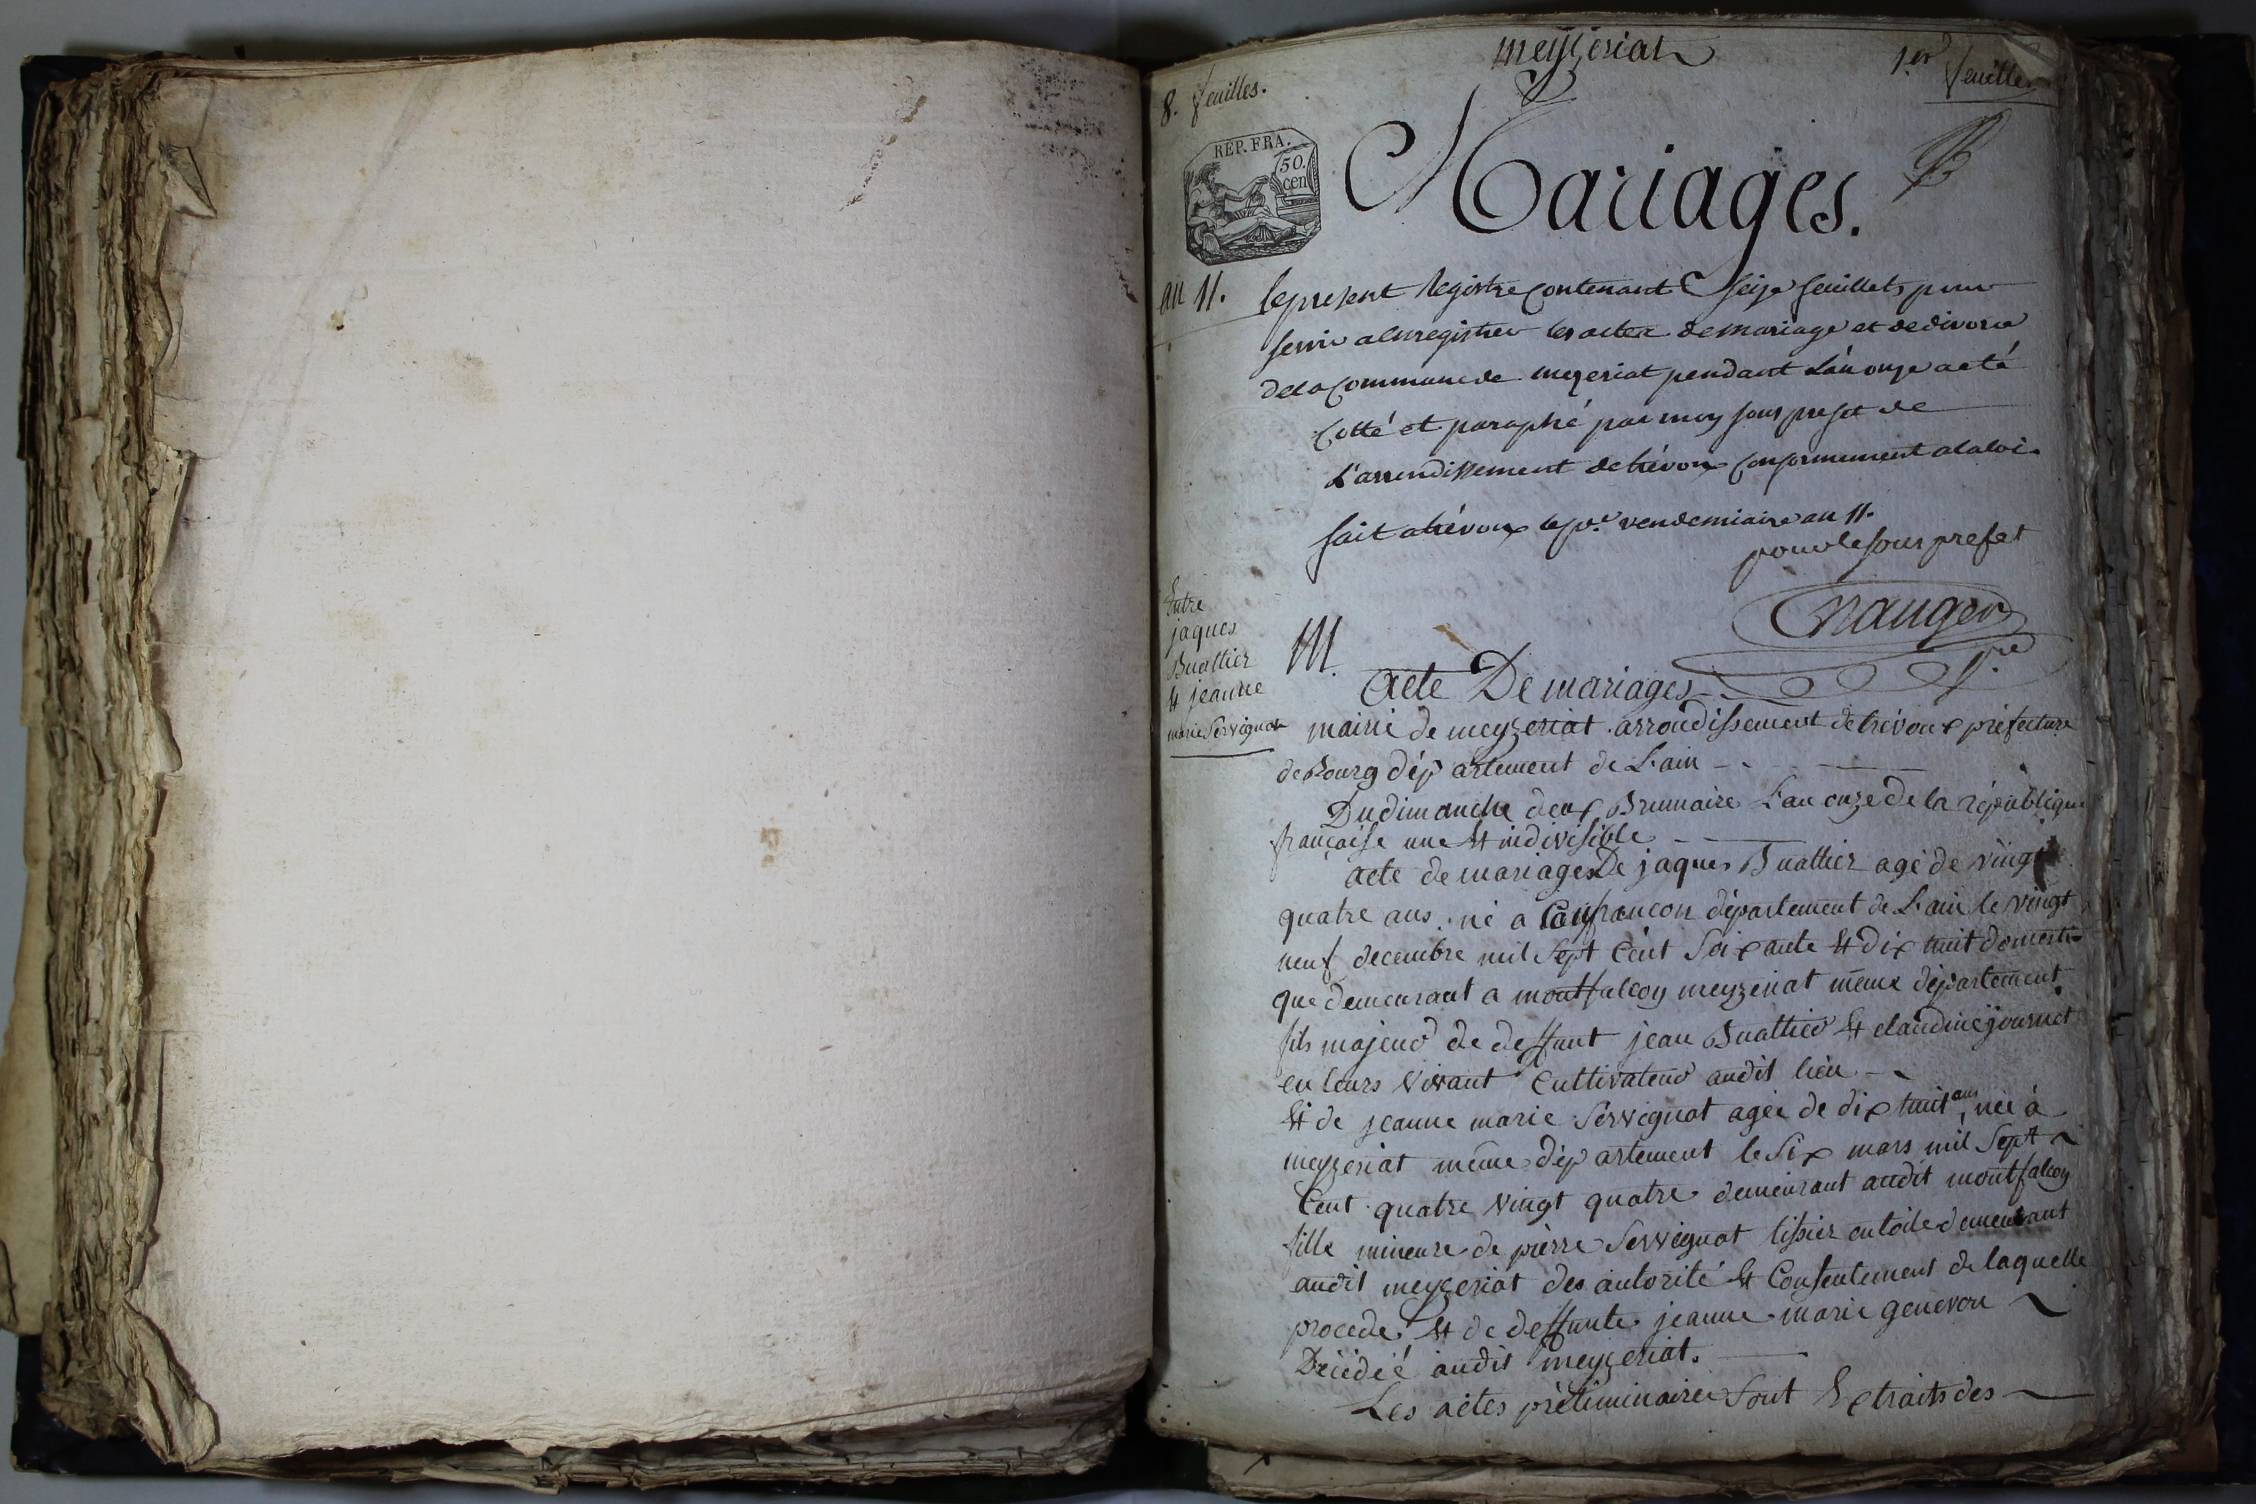 meyzeriat
8. feuilles.
1.er feuillet
REP. FRA.
50. cen
Mariages.
an 11.
le present Registre Contenant seize feuillets pour
servir a Enregistrer les actes de mariage et de divorce
de la Commune de mezeriat pendant L'an onze a eté
Cotté et paraphé par moy sous prefet de
L'arrondissement de trévoux Conformement a la loi.
fait a trévoux le p.er vendemiaire an 11.
pour le sous prefet
Entre
jaques
Buattier
et jeanne
marie Servignat
M.
acte De mariages
mairie de meyzeriat arrondissement de trévoux préfecture
de Bourg département de L'ain
Du dimanche deux Brumaire L'an onze de la république
française une et indivisible
acte de mariages De jaques Buattier agé de vingt
quatre ans né a Confrancon département de L'ain le vingt
neuf decembre mil Sept Cent Soixante et dix huit domesti
que demeurant a montfalcon meyzeriat même département
fils majeur de deffunt jean Buattier et claudine journet
en leurs vivant Cultivateur audit lieu
et de jeanne marie Servignat agée de dix huit ans, née à
meyzeriat même département le Six mars mil Sept
Cent quatre vingt quatre demeurant audit montfalcon
fille mineure de pierre Servignat tissier en toile demeurant
audit meyzeriat des autorité et Consentement de laquelle
procede et de deffunte jeanne marie genevon
Décédéé audit meyzeriat.
Les actes préliminaires Sont Extraits des